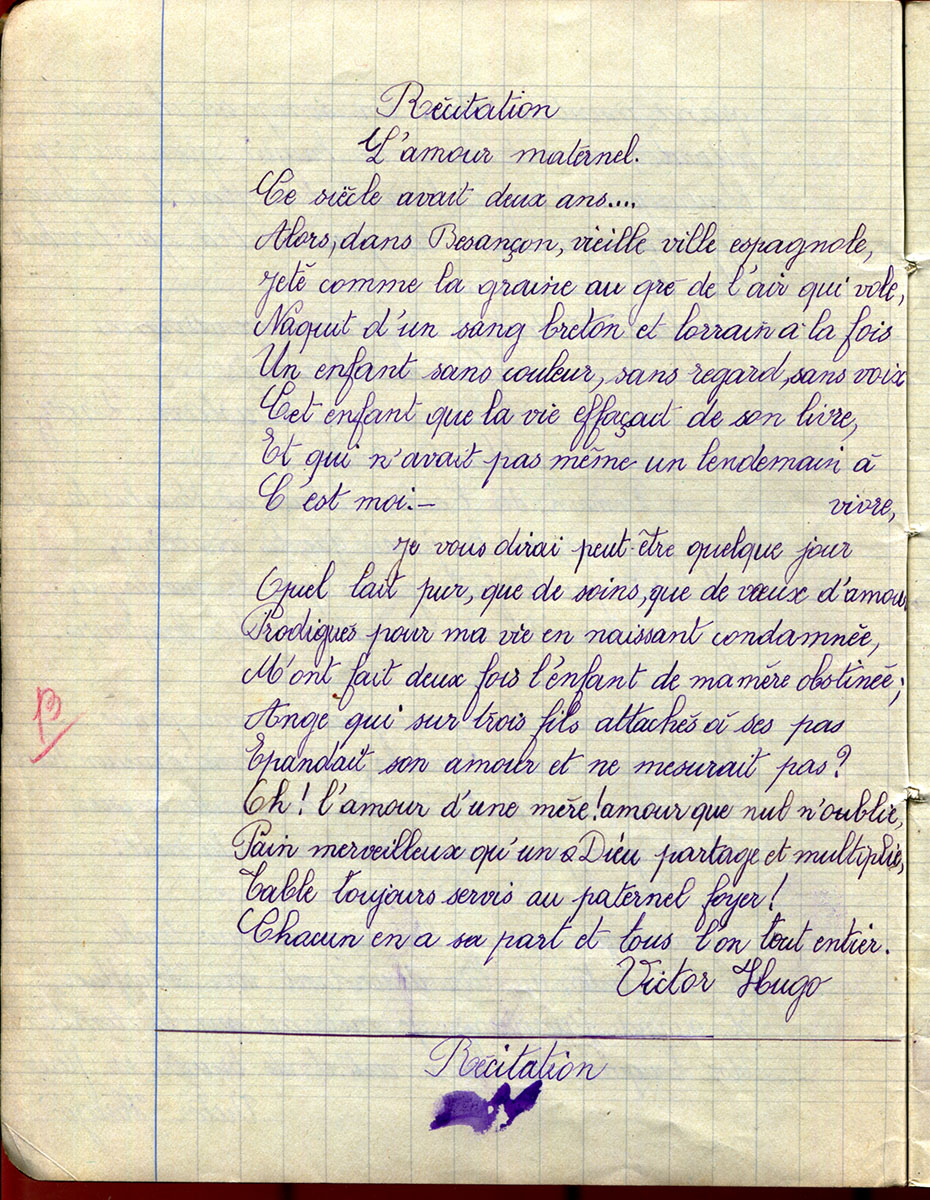 Récitation
L'amour maternel.
Ce siècle avait deux ans....
Alors, dans Besançon, vieille ville espagnole,
Jeté comme la graine au gré de l'air qui vole,
Naquit d'un sang breton et lorrain à la fois
Un enfant sans couleur, sans regard, sans voix
Cet enfant que la vie effaçait de son livre,
Et qui n'avait pas même un lendemain à
C'est moi.— vivre,
Je vous dirai peut-être quelque jour
Quel lait pur, que de soins, que de vœux d'amour
Prodigués pour ma vie en naissant condamnée,
M'ont fait deux fois l'enfant de ma mère obstinée;
Ange qui sur trois fils attachés à ses pas
Epandait son amour et ne mesurait pas?
Oh! l'amour d'une mère! amour que nul n'oublie,
Pain merveilleux qu'un Dieu partage et multiplie,
Table toujours servis au paternel foyer!
Chacun en a sa part et tous l'on tout entier.
Victor Hugo
Récitation
B